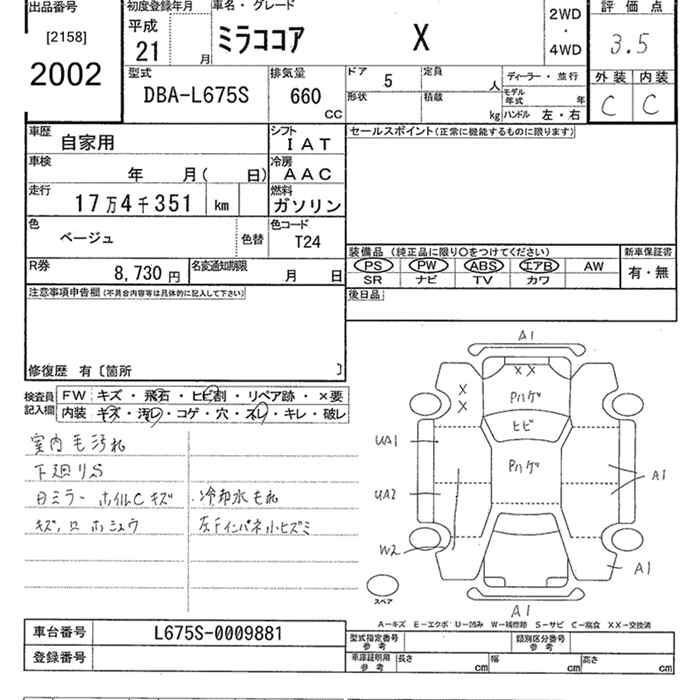 出品番号
[2158]
2002
初度登録年月
平成
21 月
車名・グレード
ミラココア X
2WD
・
4WD
評価点
3.5
外装 内装
C C
型式
DBA-L675S
排気量
660
CC
ドア 5
定員
人
形状
積載
kg
ディーラー・並行
モデル
年式 年
ハンドル 左・右
車歴
自家用
シフト
IAT
車検
年 月( 日)
冷房
AAC
走行
17万4千351 km
燃料
ガソリン
色
ベージュ
色替
色コード
T24
R券
8,730 円
名変通知期限
月 日
セールスポイント(正常に機能するものに限ります)
装備品(純正品に限り〇をつけてください)
PS PW ABS エアB AW
SR ナビ TV カワ
新車保証書
有・無
後日品
注意事項申告欄(不具合内容等は具体的に記入して下さい)
修復歴 有〔箇所 〕
検査員
記入欄
FW キズ・飛石・ヒビ割・リペア跡・×要
内装 キズ・汚レ・コゲ・穴・スレ・キレ・破レ
室内毛汚れ
下廻りS
日ミラー ホイルCキズ
冷却水もれ
キズ,
A1
X X
X
X
Pハゲ
ヒビ
Pハゲ
UA1
UA2
W2
A1
A1
A1
スペア
A-キズ E-エクボ U-凹み W-補修跡 S-サビ C-腐食 XX-交換済
車台番号
L675S-0009881
登録番号
型式指定番号
参考
類別区分番号
参考
車庫証明用
参考
長さ cm
幅 cm
高さ cm